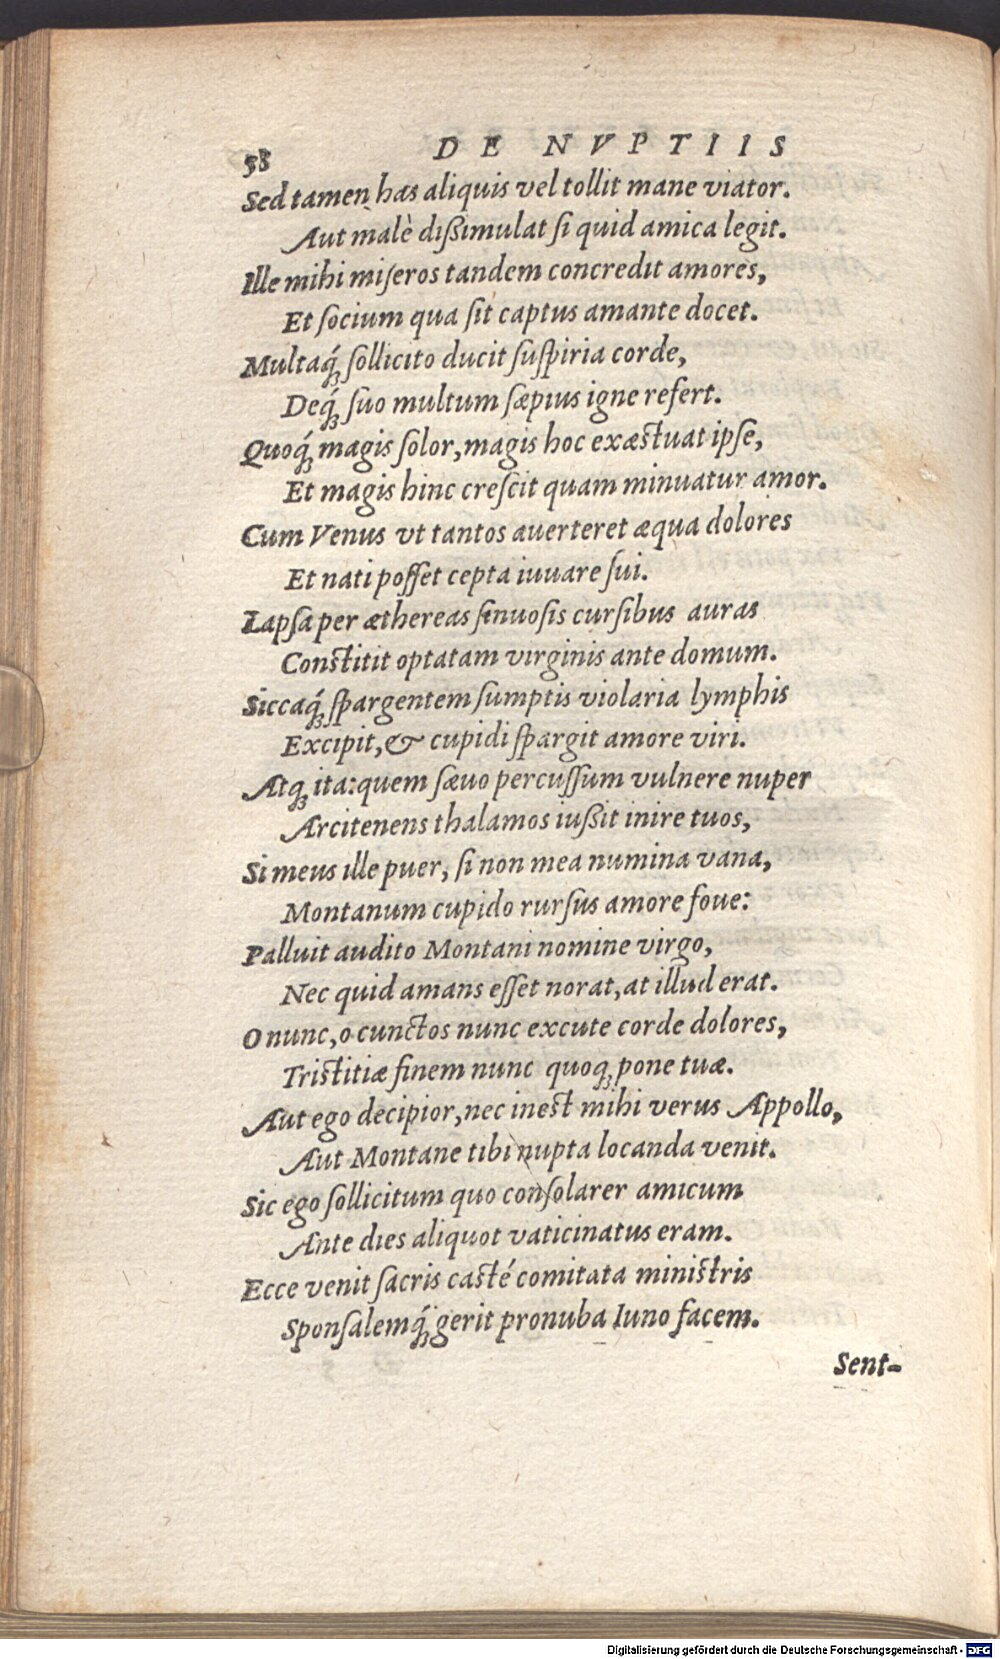 58
DE NVPTIIS
Sed tamen has aliquis vel tollit mane viator.
Aut malè dißimulat ſi quid amica legit.
Ille mihi miſeros tandem concredit amores,
Et ſocium qua ſit captus amante docet.
Multaq́ꝫ ſollicito ducit ſuſpiria corde,
Deq́ꝫ ſuo multum sæpius igne refert.
Quoq́ꝫ magis ſolor, magis hoc exæstuat ipſe,
Et magis hinc creſcit quam minuatur amor.
Cum Venus vt tantos auerteret æqua dolores
Et nati poſſet cepta iuuare ſui.
Lapſa per æthereas ſinuoſis curſibus auras
Constitit optatam virginis ante domum.
Siccaq́ꝫ ſpargentem ſumptis violaria lymphis
Excipit, & cupidi ſpargit amore viri.
Atqꝫ ita: quem ſæuo percuſſum vulnere nuper
Arcitenens thalamos iußit inire tuos,
Si meus ille puer, ſi non mea numina vana,
Montanum cupido rurſus amore foue:
Palluit audito Montani nomine virgo,
Nec quid amans eſſet norat, at illud erat.
O nunc, o cunctos nunc excute corde dolores,
Tristitiæ finem nunc quoqꝫ pone tuæ.
Aut ego decipior, nec inest mihi verus Appollo,
Aut Montane tibi nupta locanda venit.
Sic ego ſollicitum quo conſolarer amicum
Ante dies aliquot vaticinatus eram.
Ecce venit ſacris casté comitata ministris
Sponſalemq́ꝫ gerit pronuba Iuno facem.
Sent-
Digitalisierung gefördert durch die Deutsche Forschungsgemeinschaft - DFG